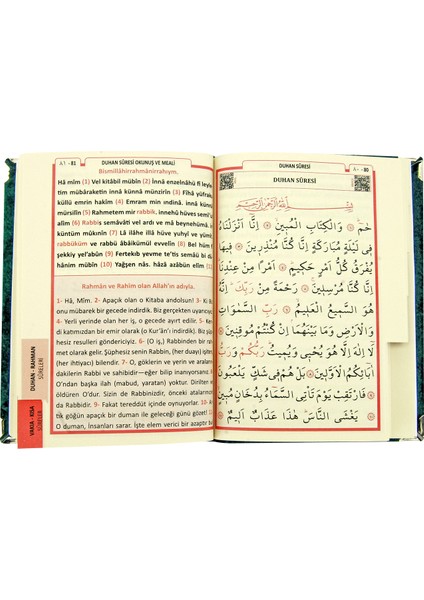 ٨١ - 81
DUHAN SÛRESİ OKUNUŞ VE MEALİ
Bismillâhirrahmânirrahıym.
Hâ mîm (1) Vel kitâbil mübîn (2) İnnâ enzelnâhü fî leyle
tim mübâraketin innâ künnâ münzirîn (3) Fîhâ yüfrak
küllü emrin hakîm (4) Emram min ındinâ, innâ künnâ
mürsilîn (5) Rahmetem mir rabbik, innehû hüves semî'u
alîm (6) Rabbis semâvâti vel ardı ve mâ beynehümâ, in
küntüm mûkınîn (7) Lâ ilâhe illâ hüve yuhyî ve yümît
rabbüküm ve rabbü âbâikümül evvelîn (8) Bel hüm f
şekkiy yel'abûn (9) Fertekıb yevme te'tis semâü bi d
hânim mübîn (10) Yağşen nâs, hâzâ azâbün elîm
Rahmân ve Rahîm olan Allah'ın adıyla.
1- Hâ, Mîm. 2- Apaçık olan o Kitaba andolsun! 3- Bi
onu mübarek bir gecede indirdik. Biz gerçekten uyarıcıyı
4- Yerli yerinde olan her iş, o gecede ayırt edilir. 5-
katımızdan bir emir olarak (o Kur'ân'ı indirdik). Şüphe
hesiz resulleri göndericiyiz. 6- (O iş,) Rabbinden bir rah
met olarak gelir. Şüphesiz senin Rabbin, (her duayı) işi
(her şeyi) bilendir. 7- O, göklerin ve yerin ve araların
dakilerin Rabbi ve sahibidir—eğer bilip inanıyorsanız.
O'ndan başka ilah (mabud, yaratan) yoktur. Diriltir v
öldüren O'dur. Sizin de Rabbinizdir, önceki atalarınızı
da Rabbidir. 9- Fakat tereddüt içinde oynuyorlar. 10-
tık göğün apaçık bir duman ile geleceği günü gözet!
O duman, İnsanları sarar. İşte elem verici bir azaptır b
DUHAN - RAHMAN
SÛRELERİ
VAKIA - KISA
SÛRELER
DUHAN SÛRESİ
٨٠ - 80
DUHAN SÛRESİ
بِسْمِ اللّٰهِ الرَّحْمٰنِ الرَّحِيمِ
حٰمٓ ۞ وَالْكِتَابِ الْمُبِينِ ۞ اِنَّٓا اَنْزَلْنَاهُ
فِى لَيْلَةٍ مُبَارَكَةٍ اِنَّا كُنَّا مُنْذِرِينَ ۞ فِيهَا
يُفْرَقُ كُلُّ اَمْرٍ حَكِيمٍ ۞ اَمْرًا مِنْ عِنْدِنَا
اِنَّا كُنَّا مُرْسِلِينَ ۞ رَحْمَةً مِنْ رَبِّكَ اِنَّهُ
هُوَ السَّمِيعُ الْعَلِيمُ ۞ رَبِّ السَّمٰوَاتِ
وَالْاَرْضِ وَمَا بَيْنَهُمَا اِنْ كُنْتُمْ مُوقِنِينَ ۞
لَٓا اِلٰهَ اِلَّا هُوَ يُحْيِى وَيُمِيتُ رَبُّكُمْ وَرَبُّ
اٰبَٓائِكُمُ الْاَوَّلِينَ ۞ بَلْ هُمْ فِى شَكٍّ يَلْعَبُونَ
۞ فَارْتَقِبْ يَوْمَ تَاْتِى السَّمَٓاءُ بِدُخَانٍ مُبِينٍ
۞ يَغْشَى النَّاسَ هٰذَا عَذَابٌ اَلِيمٌ ۞